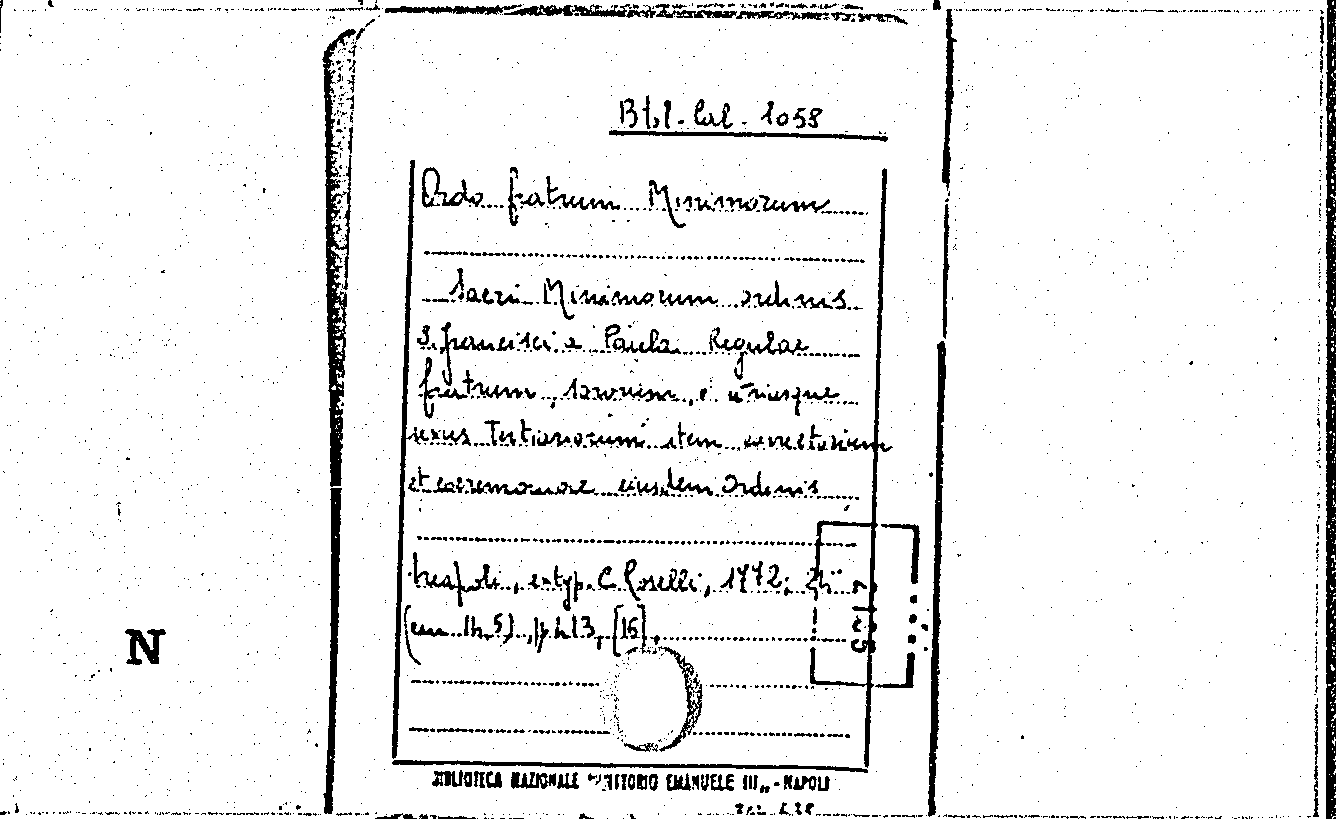 Bibl. Cal. 1058
Ordo fratrum Minimorum
Sacri Minimorum ordinis
S. Francisci a Paula Regulae
fratrum, sororum, e utriusque
sexus Tertiariorum item correctorium
et caeremoniae eiusdem Ordinis
Neapoli, ex typ. C. Roselli, 1772; 24°
(cm 14,5), pp. 413, [15].
N
BIBLIOTECA NAZIONALE "VITTORIO EMANUELE III„ - NAPOLI